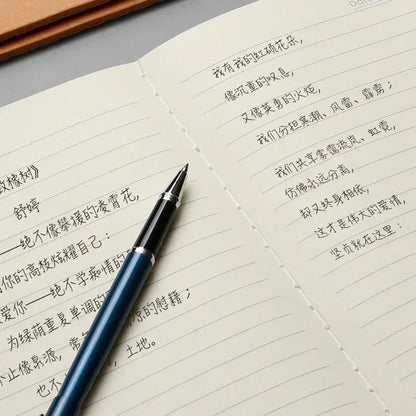 致橡树》
舒婷
——绝不像攀援的凌霄花,
你的高枝炫耀自己:
爱你——绝不学痴情的
为绿荫重复单调的
止像泉源, 常 凉的慰籍;
也不 土地。
我有我的红硕花朵,
像沉重的叹息,
又像英勇的火炬,
我们分担寒潮、风雷、霹雳;
我们共享雾霭流岚、虹霓,
仿佛永远分离,
却又终身相依,
这才是伟大的爱情,
坚贞就在这里: